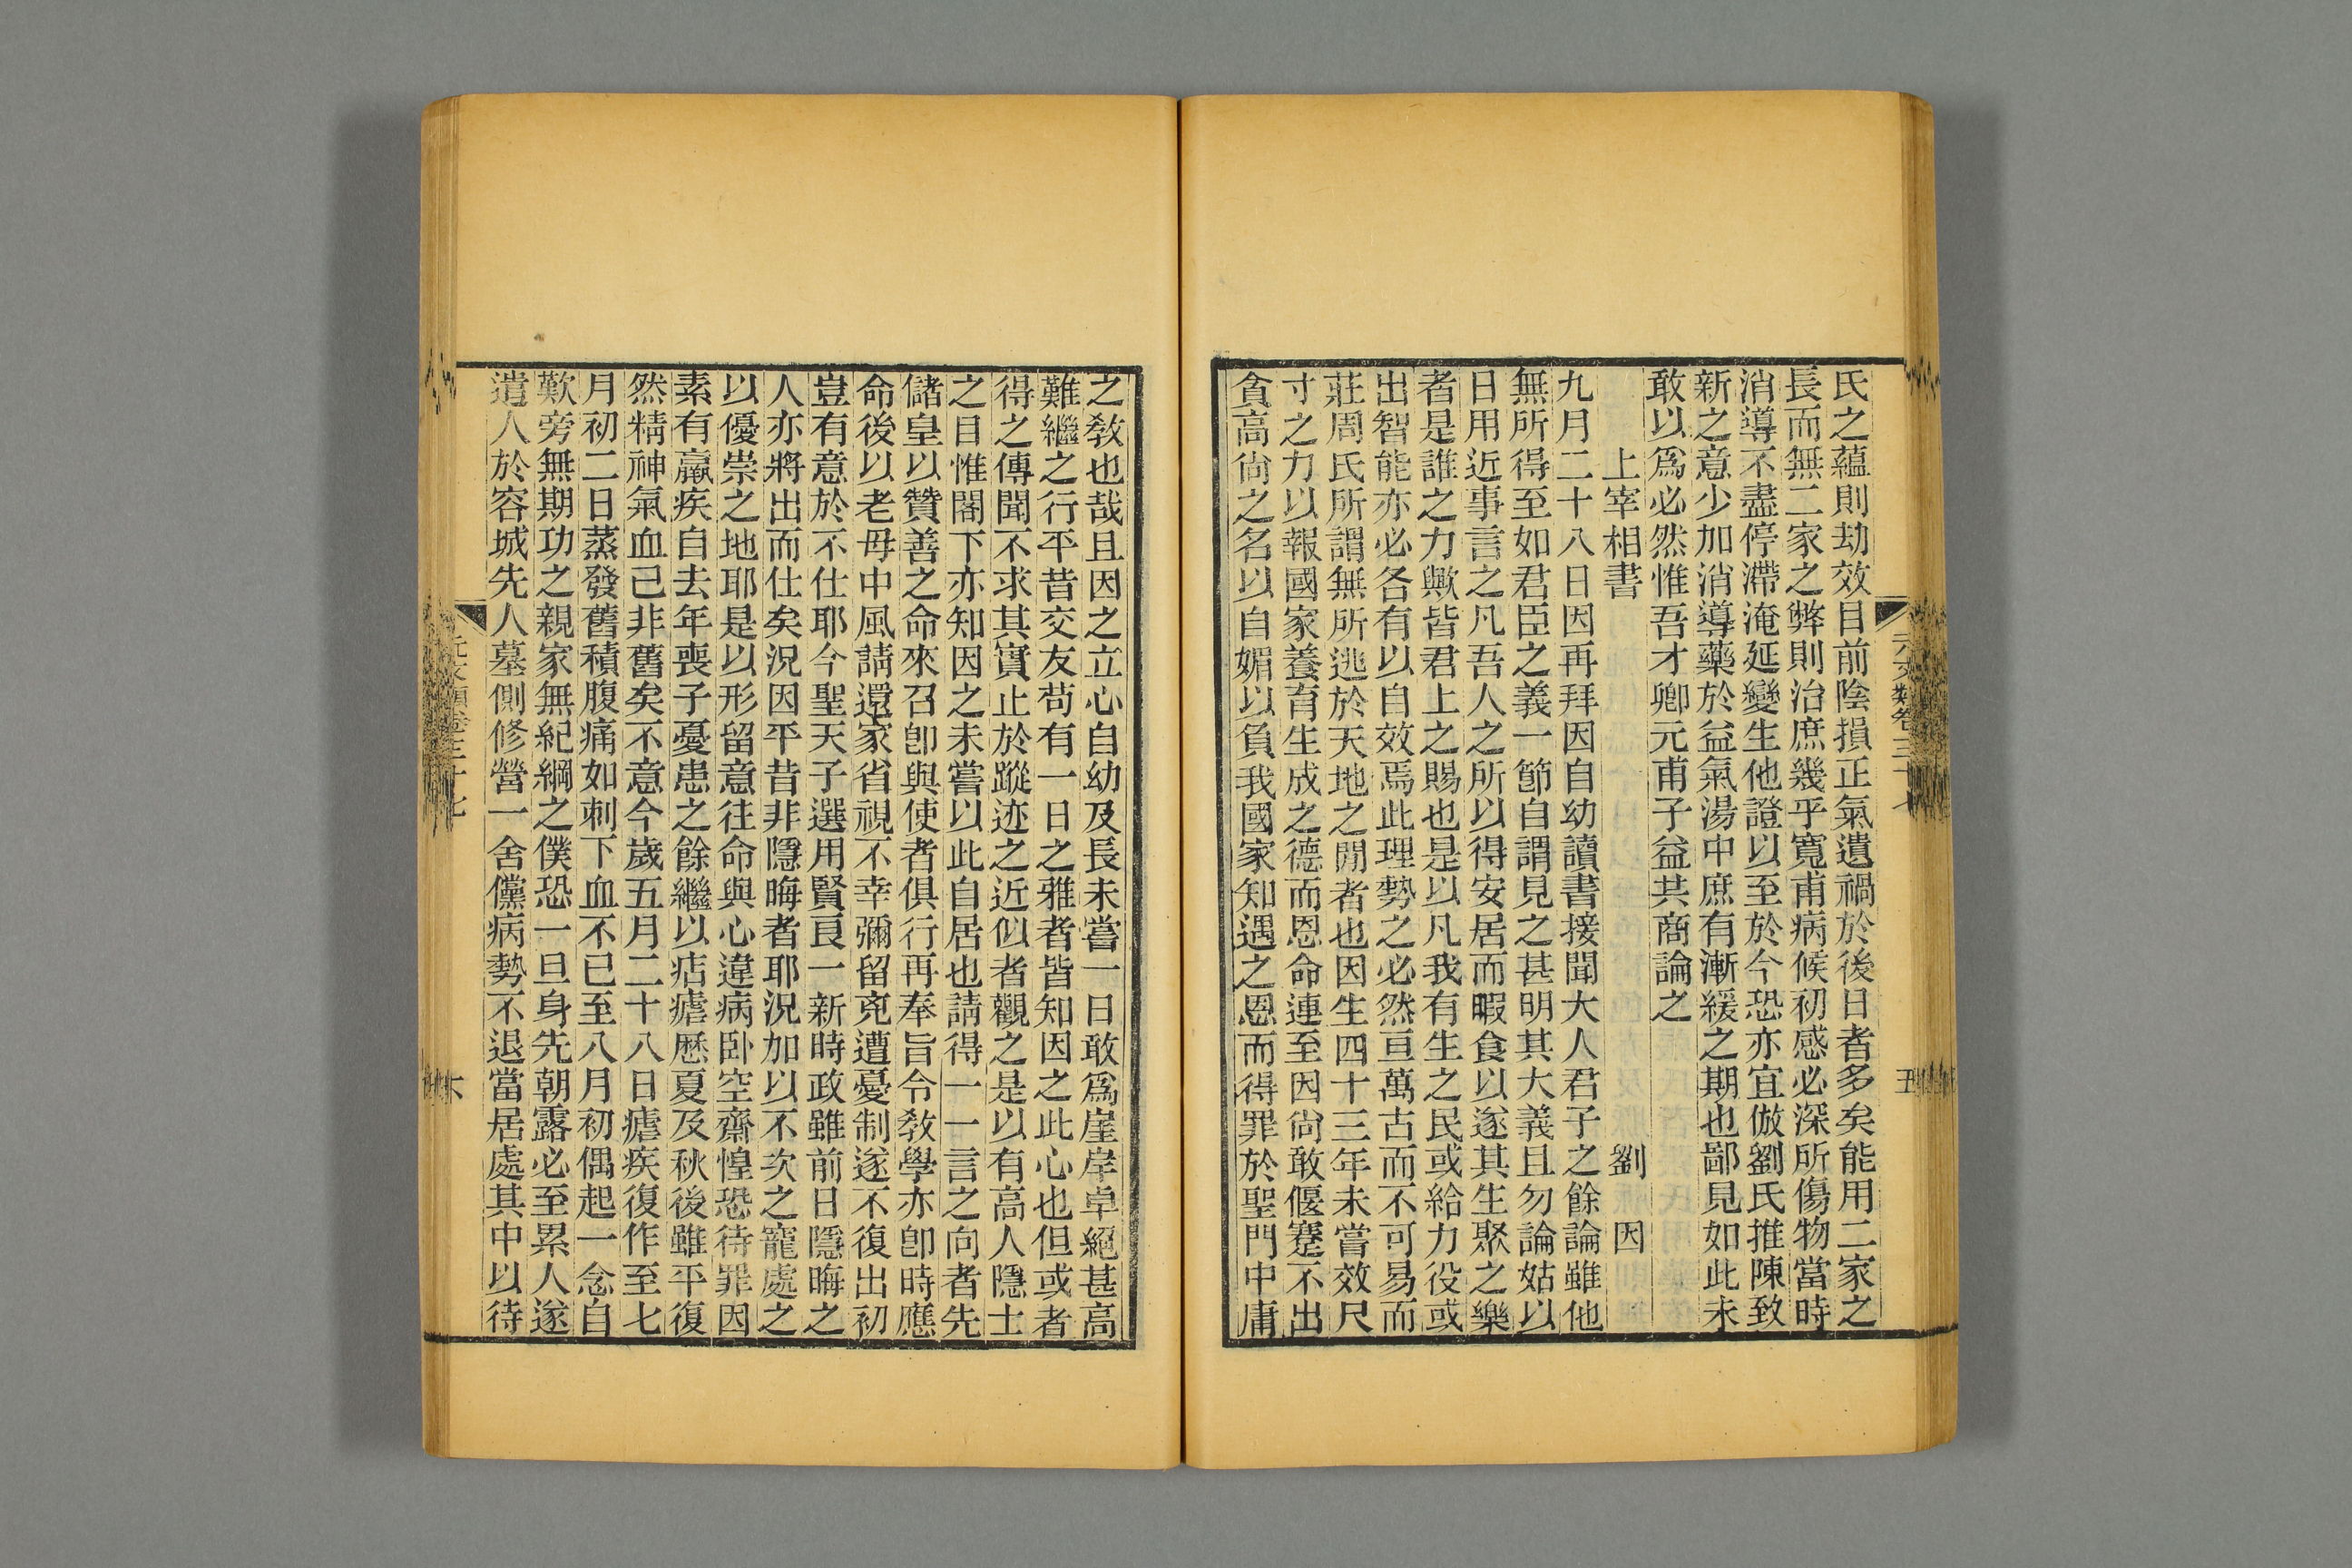 氏之蘊則劫效目前陰損正氣遺禍於後日者多矣能用二家之
長而無二家之弊則治庶幾乎寬甫病候初感必深所傷物當時
消導不盡停滯淹延變生他證以至於今恐亦宜倣劉氏推陳致
新之意少加消導藥於益氣湯中庶有漸緩之期也鄙見如此未
敢以爲必然惟吾才卿元甫子益共商論之
上宰相書 劉因
九月二十八日因再拜因自幼讀書接聞大人君子之餘論雖他
無所得至如君臣之義一節自謂見之甚明其大義且勿論姑以
日用近事言之凡吾人之所以得安居而暇食以遂其生聚之樂
者是誰之力歟皆君上之賜也是以凡我有生之民或給力役或
出智能亦必各有以自效焉此理勢之必然亘萬古而不可易而
莊周氏所謂無所逃於天地之閒者也因生四十三年未嘗效尺
寸之力以報國家養育生成之德而恩命連至因尙敢偃蹇不出
貪高尙之名以自媚以負我國家知遇之恩而得罪於聖門中庸
之敎也哉且因之立心自幼及長未嘗一日敢爲崖岸卓絕甚高
難繼之行平昔交友苟有一日之雅者皆知因之此心也但或者
得之傳聞不求其實止於蹤迹之近似者觀之是以有高人隱士
之目惟閣下亦知因之未嘗以此自居也請得一一言之向者先
儲皇以贊善之命來召卽與使者俱行再奉旨令敎學亦卽時應
命後以老母中風請還家省視不幸彌留竟遭憂制遂不復出初
豈有意於不仕耶今聖天子選用賢良一新時政雖前日隱晦之
人亦將出而仕矣況因平昔非隱晦者耶況加以不次之寵處之
以優崇之地耶是以形留意往命與心違病卧空齋惶恐待罪因
素有羸疾自去年喪子憂患之餘繼以痁瘧歷夏及秋後雖平復
然精神氣血已非舊矣不意今歲五月二十八日瘧疾復作至七
月初二日蒸發舊積腹痛如刺下血不已至八月初偶起一念自
歎旁無期功之親家無紀綱之僕恐一旦身先朝露必至累人遂
遣人於容城先人墓側修營一舍儻病勢不退當居處其中以待